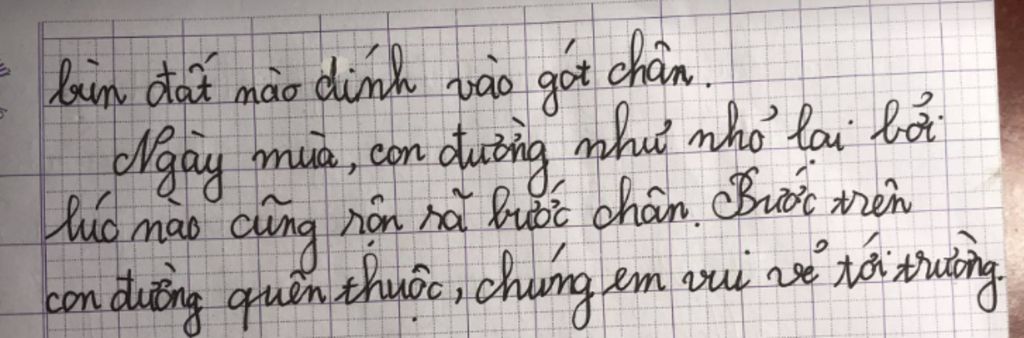 bùn đất nào dính vào gót chân.
Ngày mùa, con đường như nhỏ lại bởi
lúc nào cũng rộn rã bước chân. Bước trên
con đường quen thuộc, chúng em vui vẻ tới trường.